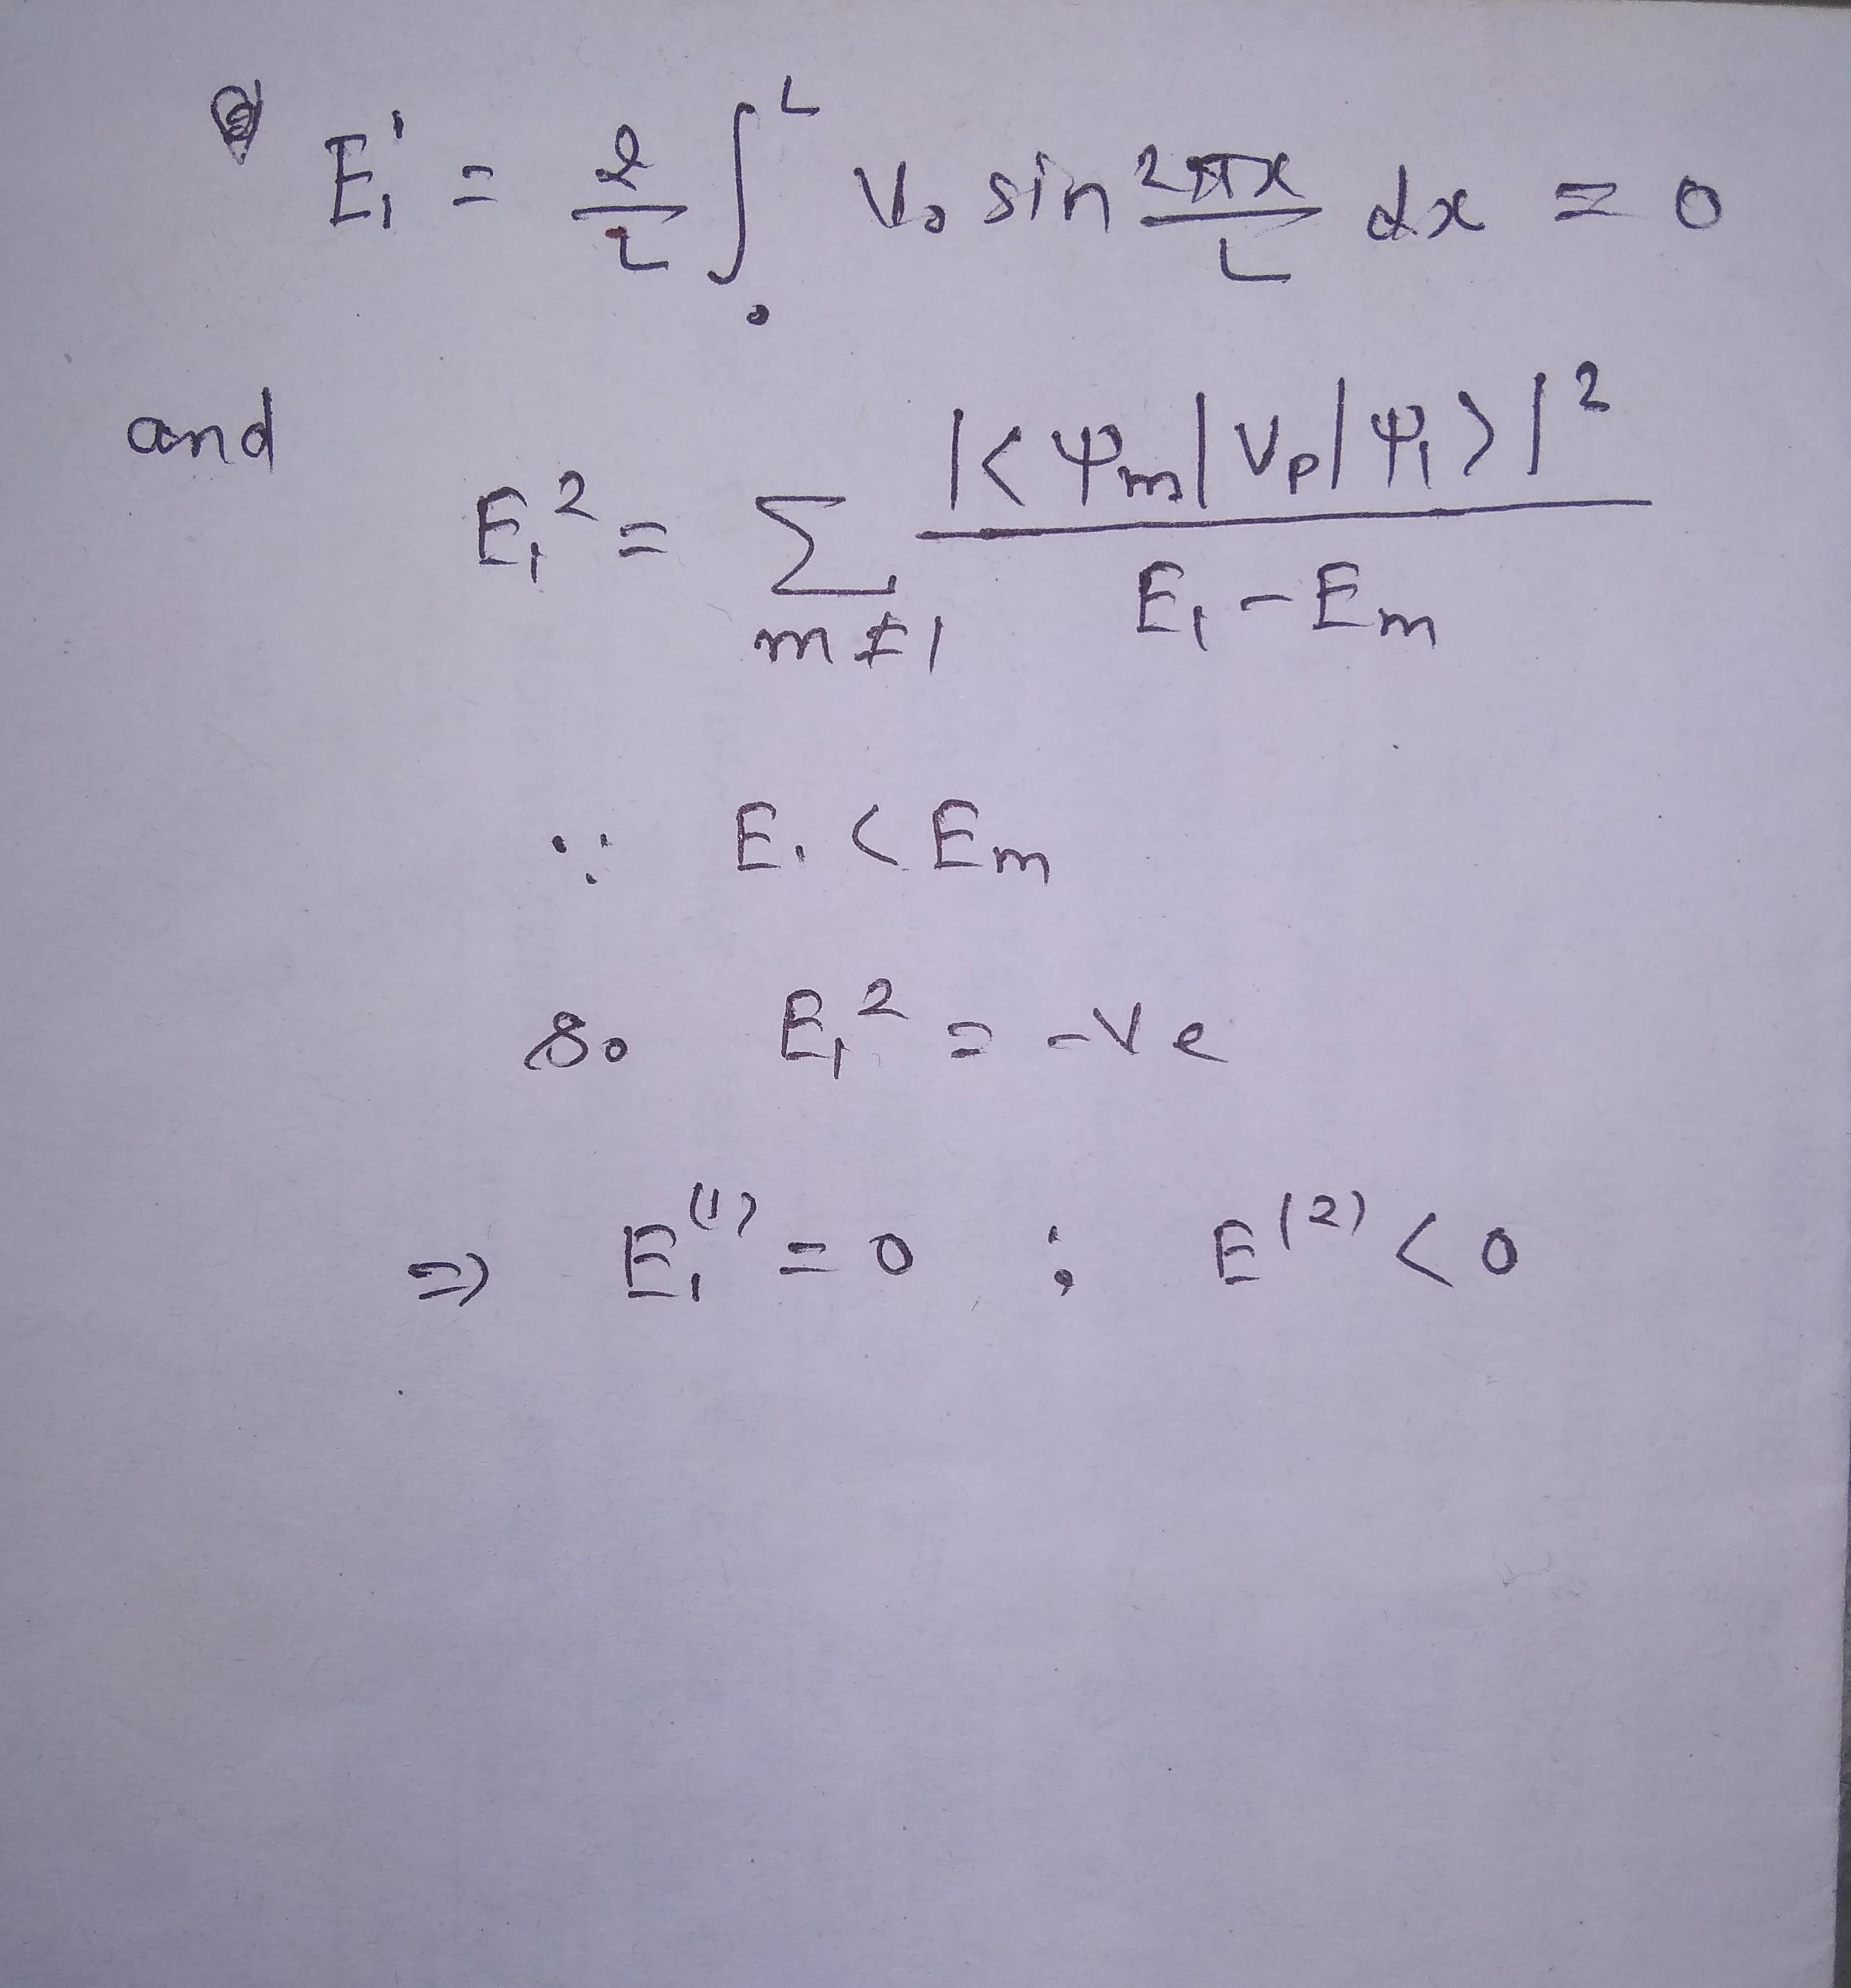 E₁¹ = 2/L ∫₀ᴸ V₀ sin 2πx/L dx = 0
and E₁² = Σ_{m≠1} |<Ψm|Vp|Ψ₁>|² / E₁ - Em
∵ E₁ < Em
So E₁² = -Ve
⇒ E₁⁽¹⁾ = 0 ; E⁽²⁾ < 0